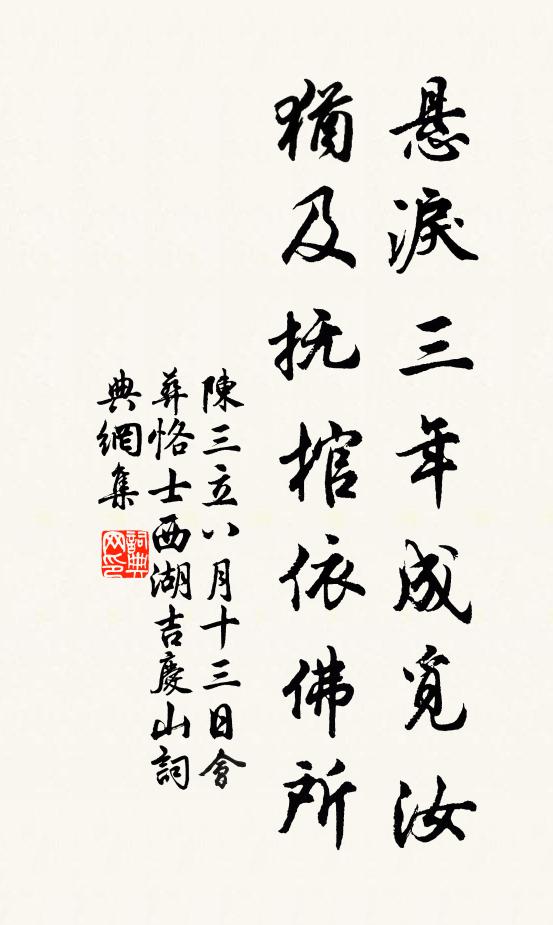 悬淚三年成覓汝
猶及抚棺依佛所
陳三立八月十三日會
葬恪士西湖吉慶山詞
典網集
詞典
网印